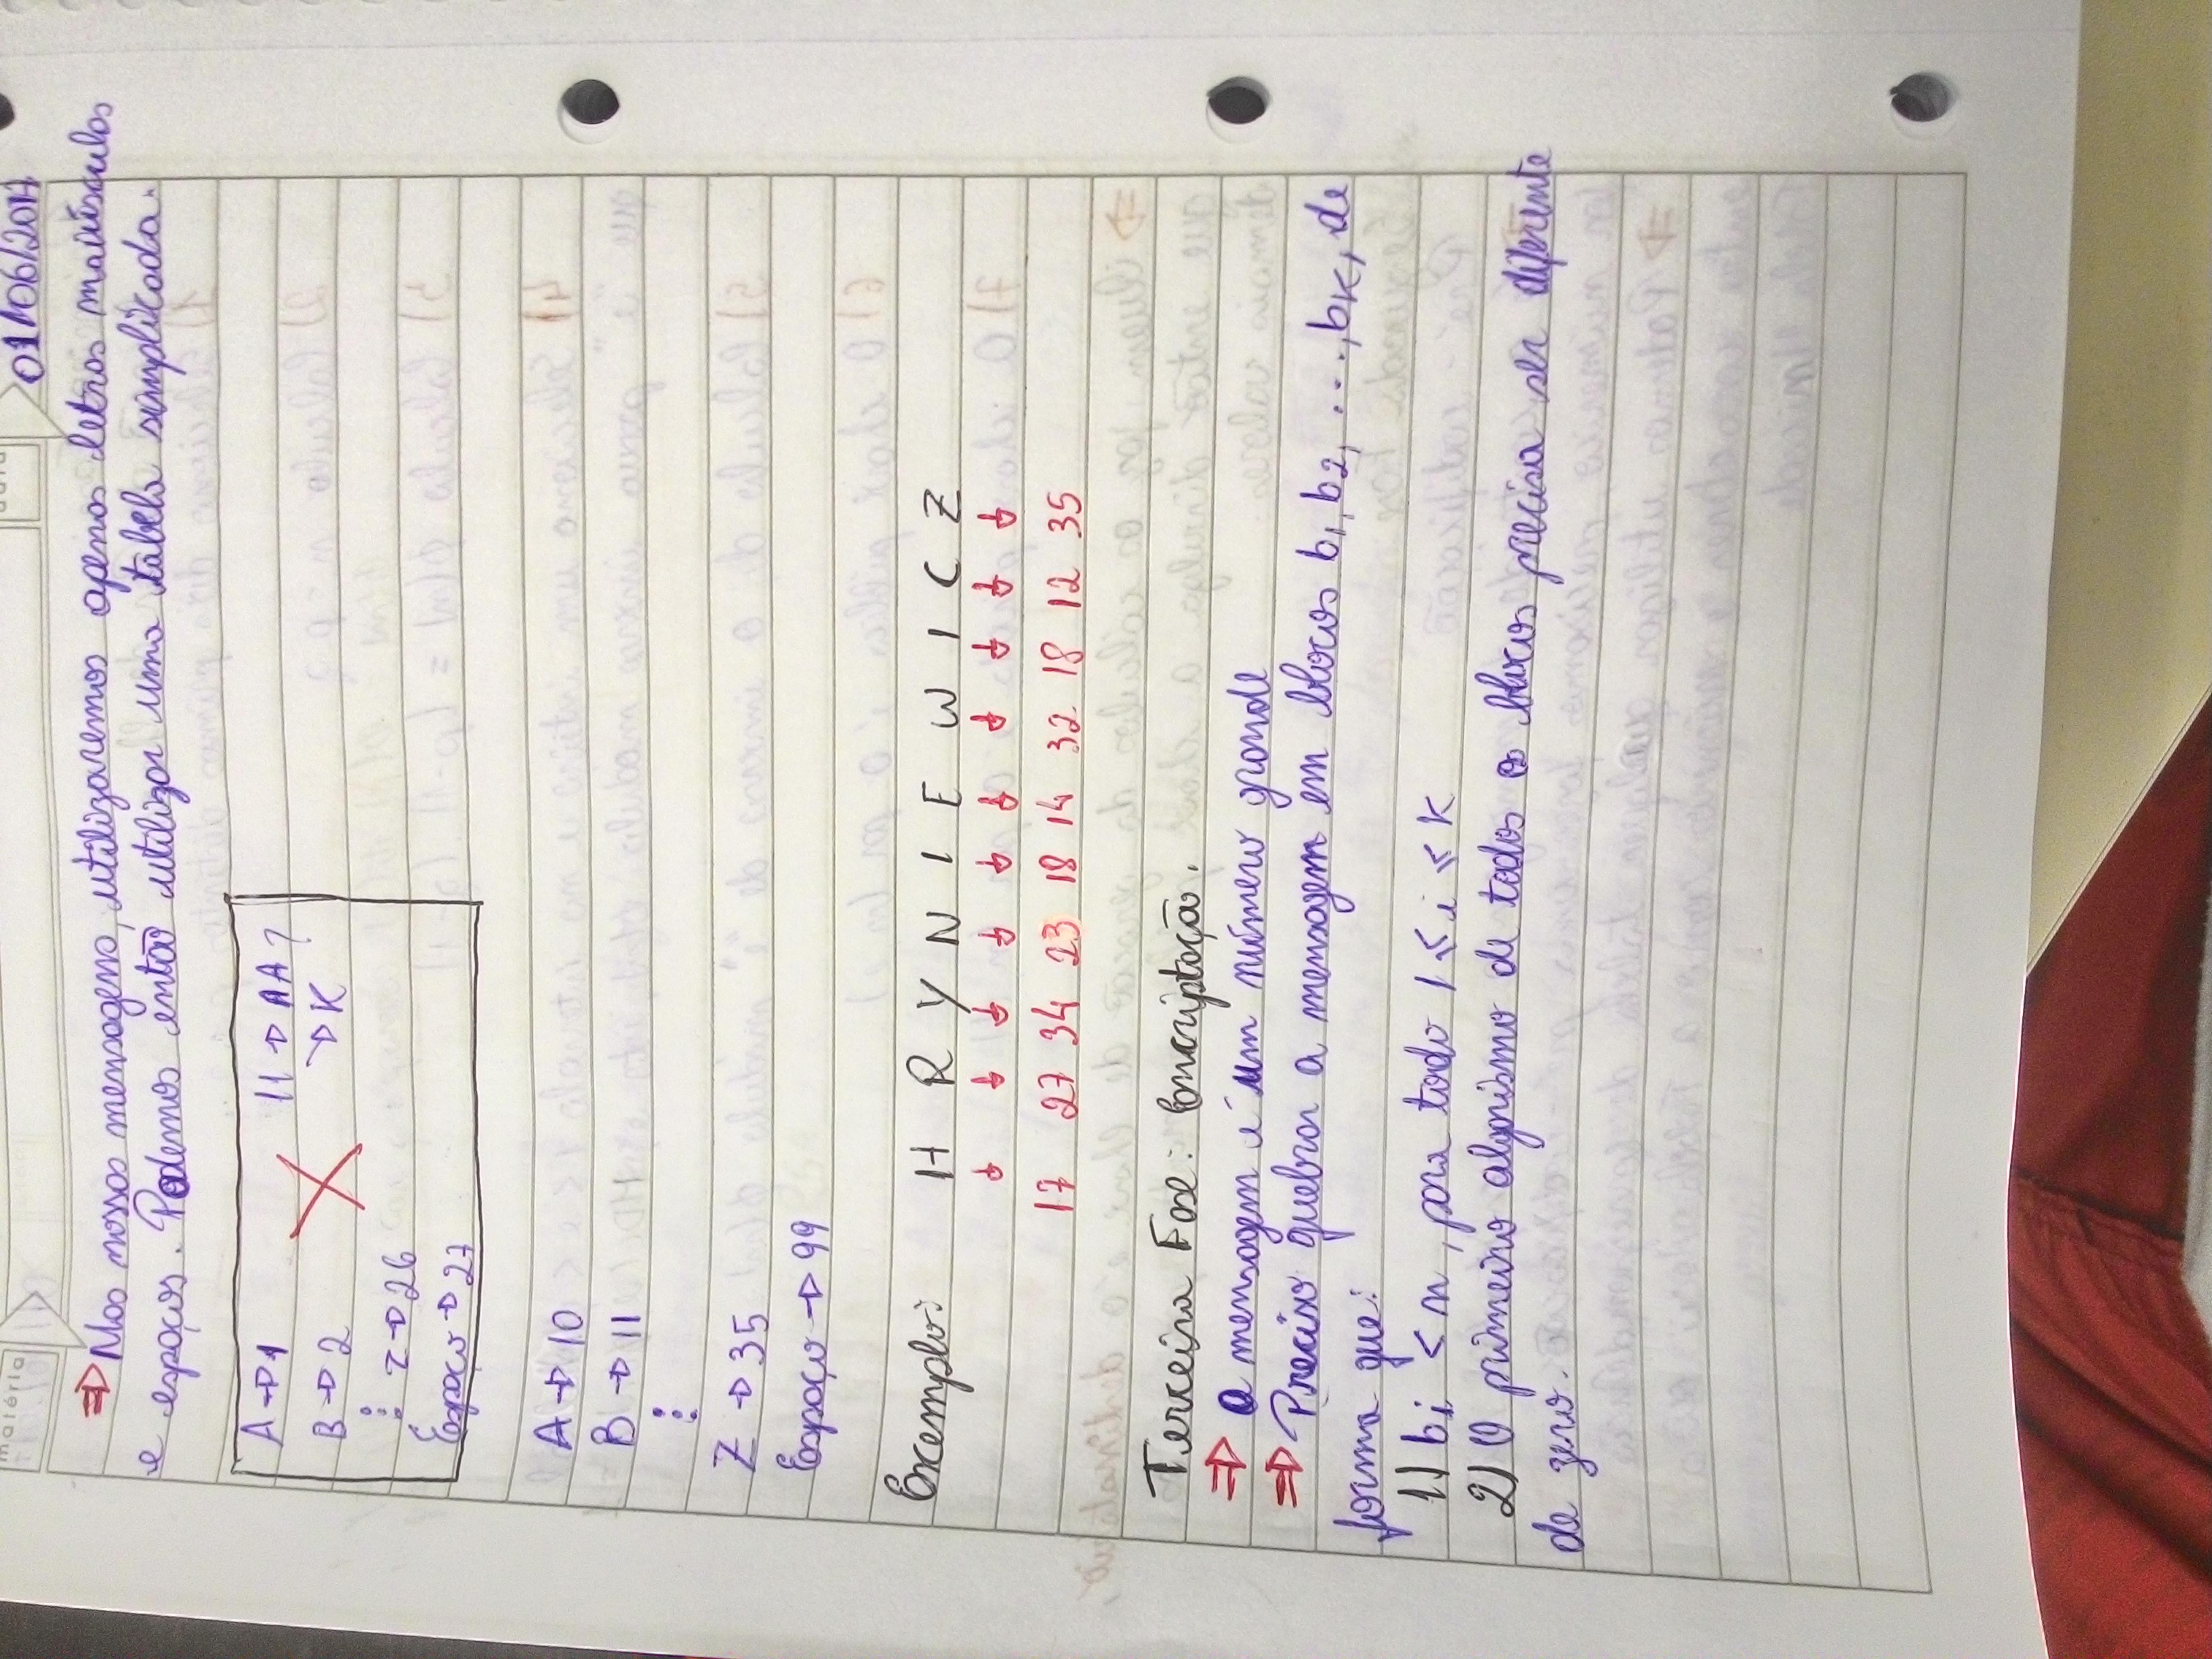 matéria
data
01/06/2017
⇒ Nas nossas mensagens, utilizaremos apenas letras maiúsculas
e espaços. Podemos então utilizar uma tabela simplicada.
A → 1 11 → AA?
B → 2 → K
⋮ Z → 26
Espaço → 27
A → 10
B → 11
⋮
Z → 35
Espaço → 99
Exemplo: H R Y N I E W I C Z
↓ ↓ ↓ ↓ ↓ ↓ ↓ ↓ ↓ ↓
17 27 34 23 18 14 32 18 12 35
Terceira Fase: Encriptação.
⇒ a mensagem é um número grande
⇒ Preciso quebrar a mensagem em blocos b1, b2, ..., bK, de
forma que:
1) bi < n, para todo 1 ≤ i ≤ K
2) O primeiro algorismo de todos os blocos precisa ser diferente
de zero.